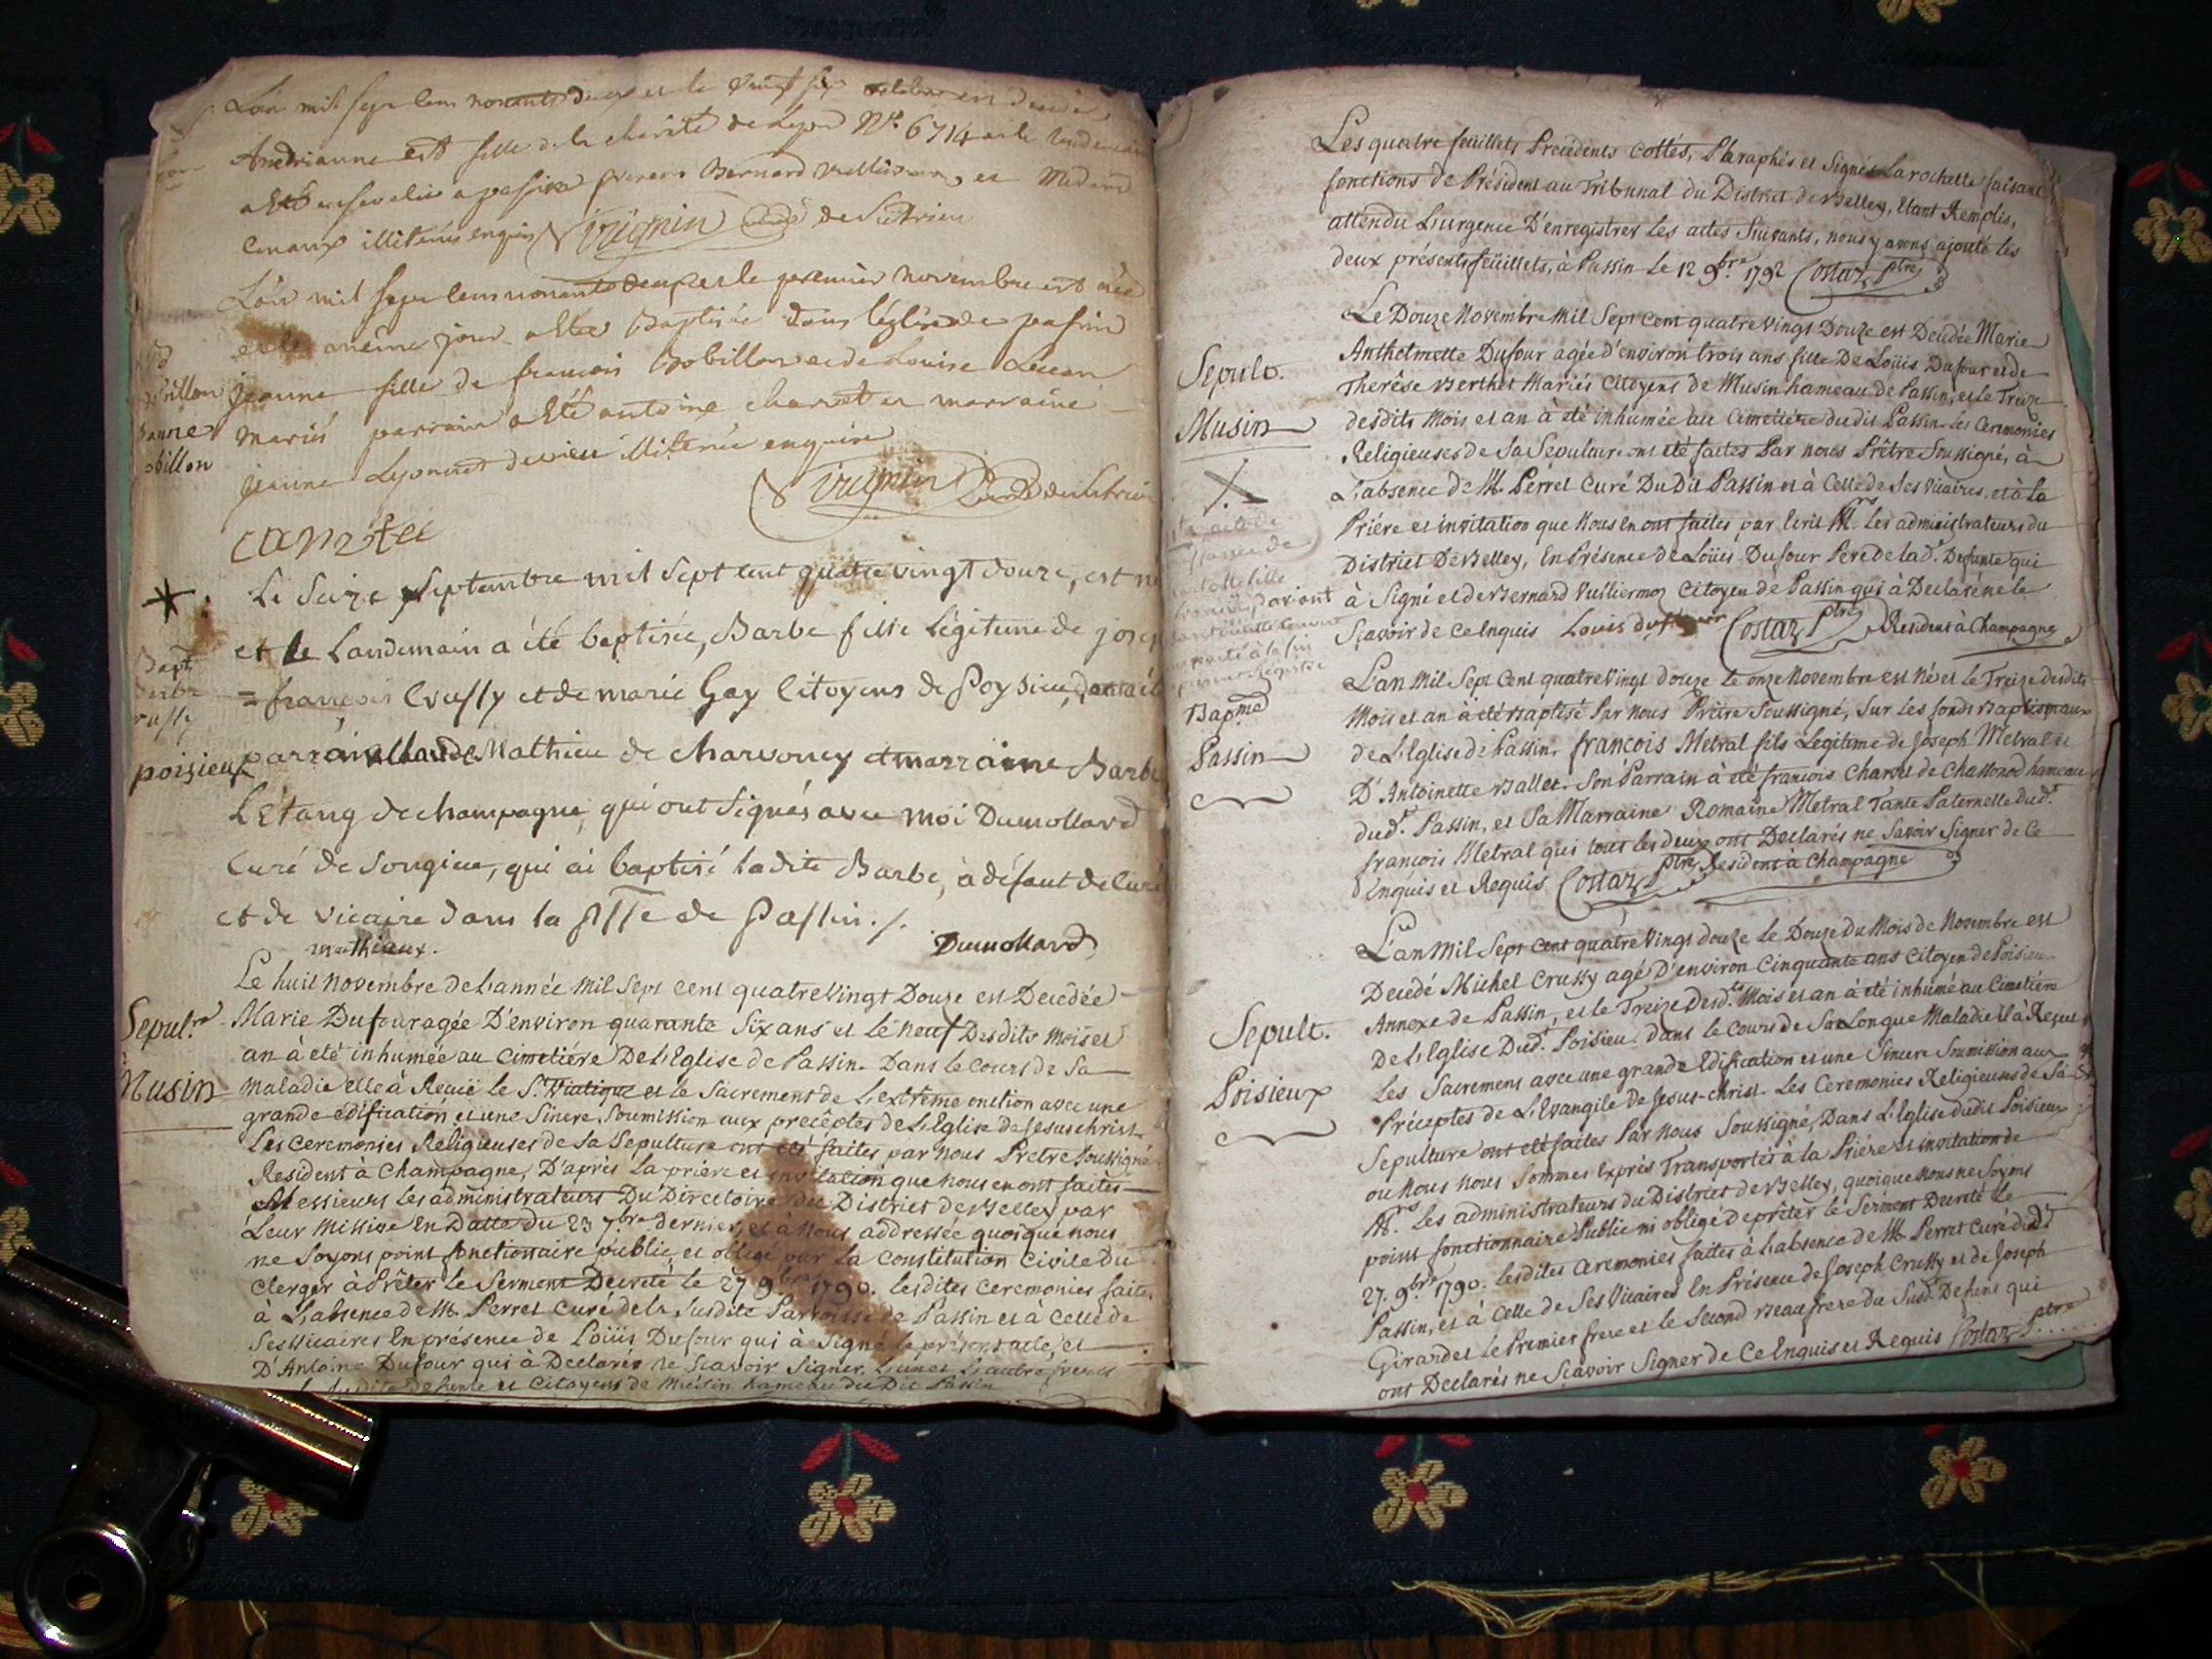 L'an mil sept cens nonante deux et le vingt six octobre est decede
Andrianne est fille de la charité de Lyon N° 6714 et le lendemain
a été ensevelie a passin presens Bernard vuilliermoz et Medard
illiterés enquis Vugnin curé de Sutrieu
L'an mil sept cens nonante deux et le premier novembre est née
et le même jour a été Baptisée dans l'église de passin
jeanne fille de francois Bobillon et de Louise
mariés parrain a été antoine charvet et marraine
jeanne Lyonnet de vieu illiterés enquis
Vugnin Curé de Sutrieu
Bobillon
Jeanne
Bobillon
Le Seize Septembre mil sept cent quatre vingt douze, est né
et le Landemain a été baptisée, Barbe fille légitime de josep
= françois Crussy et de marie Gay Citoyens de Poysieu, dont a été
parrain Claude Mathieu de charvoney et marraine Barbe
Létang de champagne, qui ont signés avec moi Dumollard
Curé de Songieu, qui ai baptisé ladite Barbe, à défaut de Curé
et de vicaire dans la psse de Passin./.
mathieux. Dumollard
Bapt
Barbe
Crussy
poisieux
Le huit Novembre de L'année Mil Sept cent quatre Vingt Douze est Decedée
Marie Dufour agée D'environ quarante Six ans et Le Neuf Desdits Mois et
an à été inhumée au Cimetiére De L'Eglise de Passin. Dans le Cours de Sa
Maladie elle à Reçuë le St. Viatique et le Sacrement de L'extrême onction avec une
grande édification et une Sincere Soumission aux preceptes de L'Eglise de Jesus christ
Les Ceremonies Religieuses de Sa Sepulture ont été faites par Nous Prêtre Soussigné
Resident à Champagne, D'après La priére et invitation que Nous en ont faites
Messieurs Les administrateurs Du Directoire du District de Belley par
Leur Missive En Datte du 23 7bre dernier, et à Nous addressée quoique nous
ne Soyons point fonctionnaire public, et obligé par La Constitution Civile Du
Clergé à Prêter le Serment Decreté le 27 9bre 1790. lesdites Ceremonies faites
à L'absence de M. Perret Curé de la Susdite Parroisse de Passin et à celle de
Ses Vicaires En présence de Loüis Dufour qui à Signé le présent acte, et
D'Antoine Dufour qui à Declarés ne Sçavoir Signer. L'un et L'autre freres
de Ladite Defunte et Citoyens de Musin hameau du Dit Passin
Sepulre
à
Musin
Les quatre feüillets Precedents Cottés, Pharaphés et Signés Larochette faisant
fonctions de Président au Tribunal du District de Belley, Etant Remplis,
attendu L'urgence D'enregistrer Les actes Suivants, nous y avons ajouté les
deux présents feüillets, à Passin Le 12 9bre 1792 Costaz Ptre
Le Douze Novembre Mil Sept Cent quatre Vingt Douze est Decedée Marie
Anthelmette Dufour agée d'environ trois ans fille De Loüis Dufour et de
Therêse Berthet Mariés Citoyens de Musin hameau de Passin, et Le Treize
desdits Mois et an à été inhumée au Cimetiére dudit Passin. Les Ceremonies
Religieuses de Sa Sepulture ont été faites Par Nous Prêtre Soussigné, à
L'absence de M. Perret Curé Du Dit Passin et à Celle de Ses Vicaires, et à La
Priére et invitation que Nous en ont faites, par Ecrit Mrs. Les administrateurs du
District De Belley, En Présence de Loüis Dufour Pere de lad. Defunte qui
à Signé et de Bernard Vuilliermoz Citoyen de Passin qui à Declaré ne le
Sçavoir de Ce Enquis Louis dufour Costaz Ptre Resident à Champagne
Sepult.
Musin
L'an Mil Sept Cent quatre Vingt douze Le onze Novembre est Né et Le Treize desdits
Mois et an à été Baptisé Par Nous Prêtre Soussigné, Sur Les fonds Baptismaux
de L'Eglise de Passin, françois Metral fils Legitime de Joseph Metral et
D'Antoinette Ballet. Son Parrain à été françois Charvet de Chassonod hameau
dud. Passin, et Sa Marraine Romaine Metral Tante Paternelle dud.
françois Metral qui tous les deux ont Declarés ne Savoir Signer de Ce
Enquis et Requis Costaz Ptre Resident à Champagne
Bapme
Passin
L'an Mil Sept Cent quatre Vingt douze Le Douze Du Mois de Novembre est
Decedé Michel Crussy agé D'environ Cinquante ans Citoyen de Poisieu
Annexe de Passin, et le Treize desd.ts Mois et an à été inhumé au Cimetiére
De L'Eglise Dud. Poisieu. Dans le Cours de Sa Longue Maladie il à Reçut
Les Sacrements avec une grande Edification et une Sincere Soumission aux
Préceptes de L'Evangile de Jesus-christ. Les Ceremonies Religieuses de Sa
Sepulture ont été faites Par Nous Soussigné, Dans L'Eglise dudit Poisieux
ou Nous Nous Sommes Exprès Transportés à la Priére et invitation de
Mrs. Les administrateurs du District de Belley, quoique Nous ne Soyons
point fonctionnaire Public ni obligé de prêter le Serment Decreté le
27. 9bre 1790. lesdites Ceremonies faites à L'absence de M. Perret Curé dud.
Passin, et à Celle de Ses Vicaires En Présence de Joseph Crussy et de Joseph
Girardet le Premier frere et le Second Beaufrere du Susd. Defunt qui
ont Declarés ne Sçavoir Signer de Ce Enquis et Requis Costaz Ptre
Sepult.
Poisieux